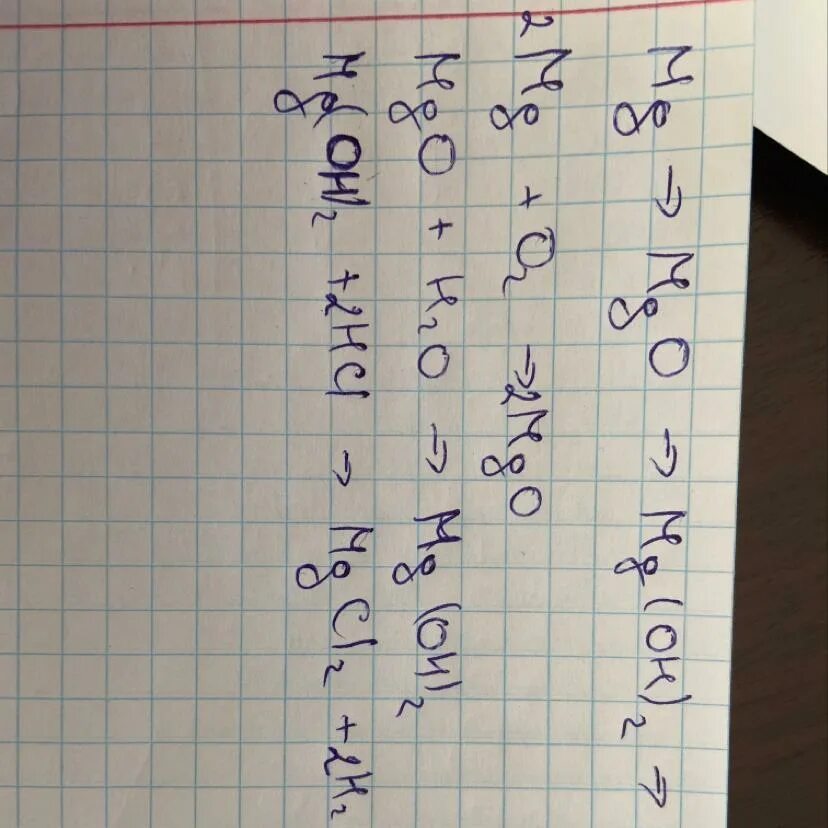 Mg → MgO → Mg(OH)₂ →
2Mg + O₂ → 2MgO
MgO + H₂O → Mg(OH)₂
Mg(OH)₂ + 2HCl → MgCl₂ + 2H₂